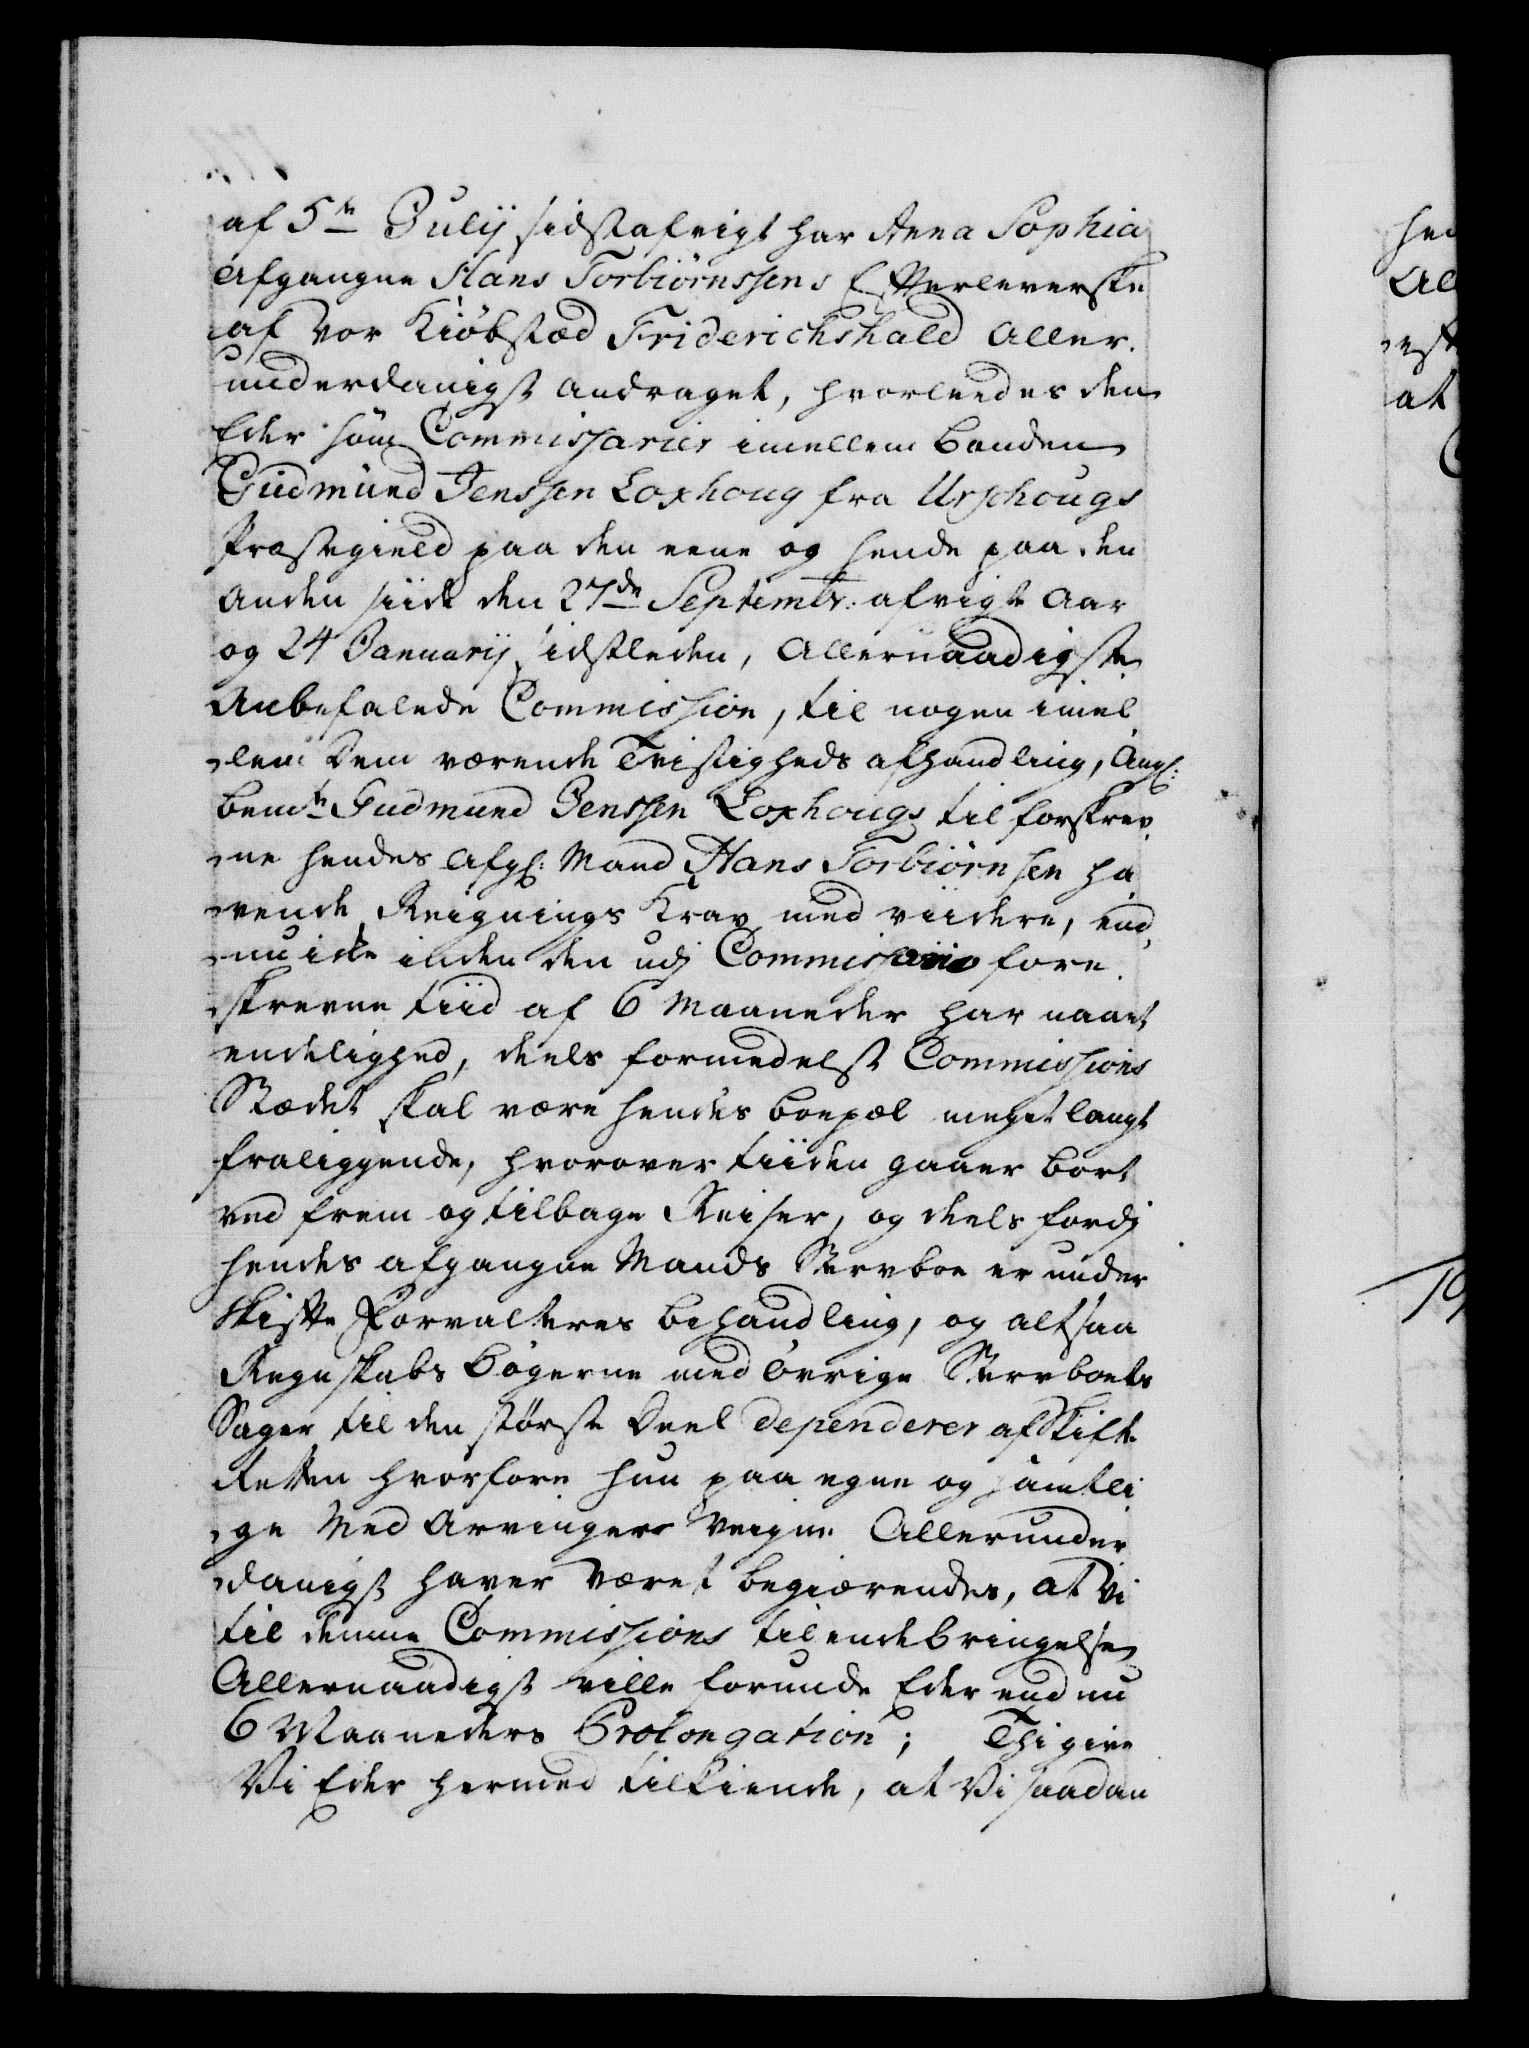 af 5te Julij sidstafvigt har Anna Sophia
afgangne Hans Torbiørnssens Efterleverske
af vor Kiøbstæd Friderichshald aller-
underdanigst andraget, hvorleedes den
Eder som Commissarier imellem Bonden
Gudmund Jenssen Loxhoug fra Urschougs
Præstegield paa den eene og hende paa den
anden siide den 27de Septembr: afvigte Aar
og 24 Januarij sidstleden, Allernaadigste
Anbefalede Commission, til nogen imel-
lem dem værende Tvistigheds afhandling, Ang:
bemte Gudmund Jenssen Loxhougs til forskrev-
ne hendes afg: Mand Hans Torbiørnsen ha-
vende Reignings Krav med viidere, end-
nu icke inden den udj Commissorio fore-
skrevne tiid af 6 Maaneder har naaet
endelighed, deels formedelst Commissions
Stædet skal være hendes boepæl meget langt
fraliggende, hvorover tiiden gaaer bort
ved frem og tilbage Reiser, og deels fordj
hendes afgangne Mands Stervboe er under
Skifte Forvalteres behandling, og altsaa
Regnskabs bøgerne med øvrige Stervboets
Sager til den største Deel dependerer af Skifte
Retten hvorfore hun paa egne og samtli-
ge Med Arvingers Veigne Allerunder-
danigst haver været begiærendes, at Vi
til denne Commissions tilendebringelse
Allernaadigst ville forunde Eder end nu
6 Maaneders Prolongation; Thi give
Vi Eder hermed tilkiende, at Vi saadan